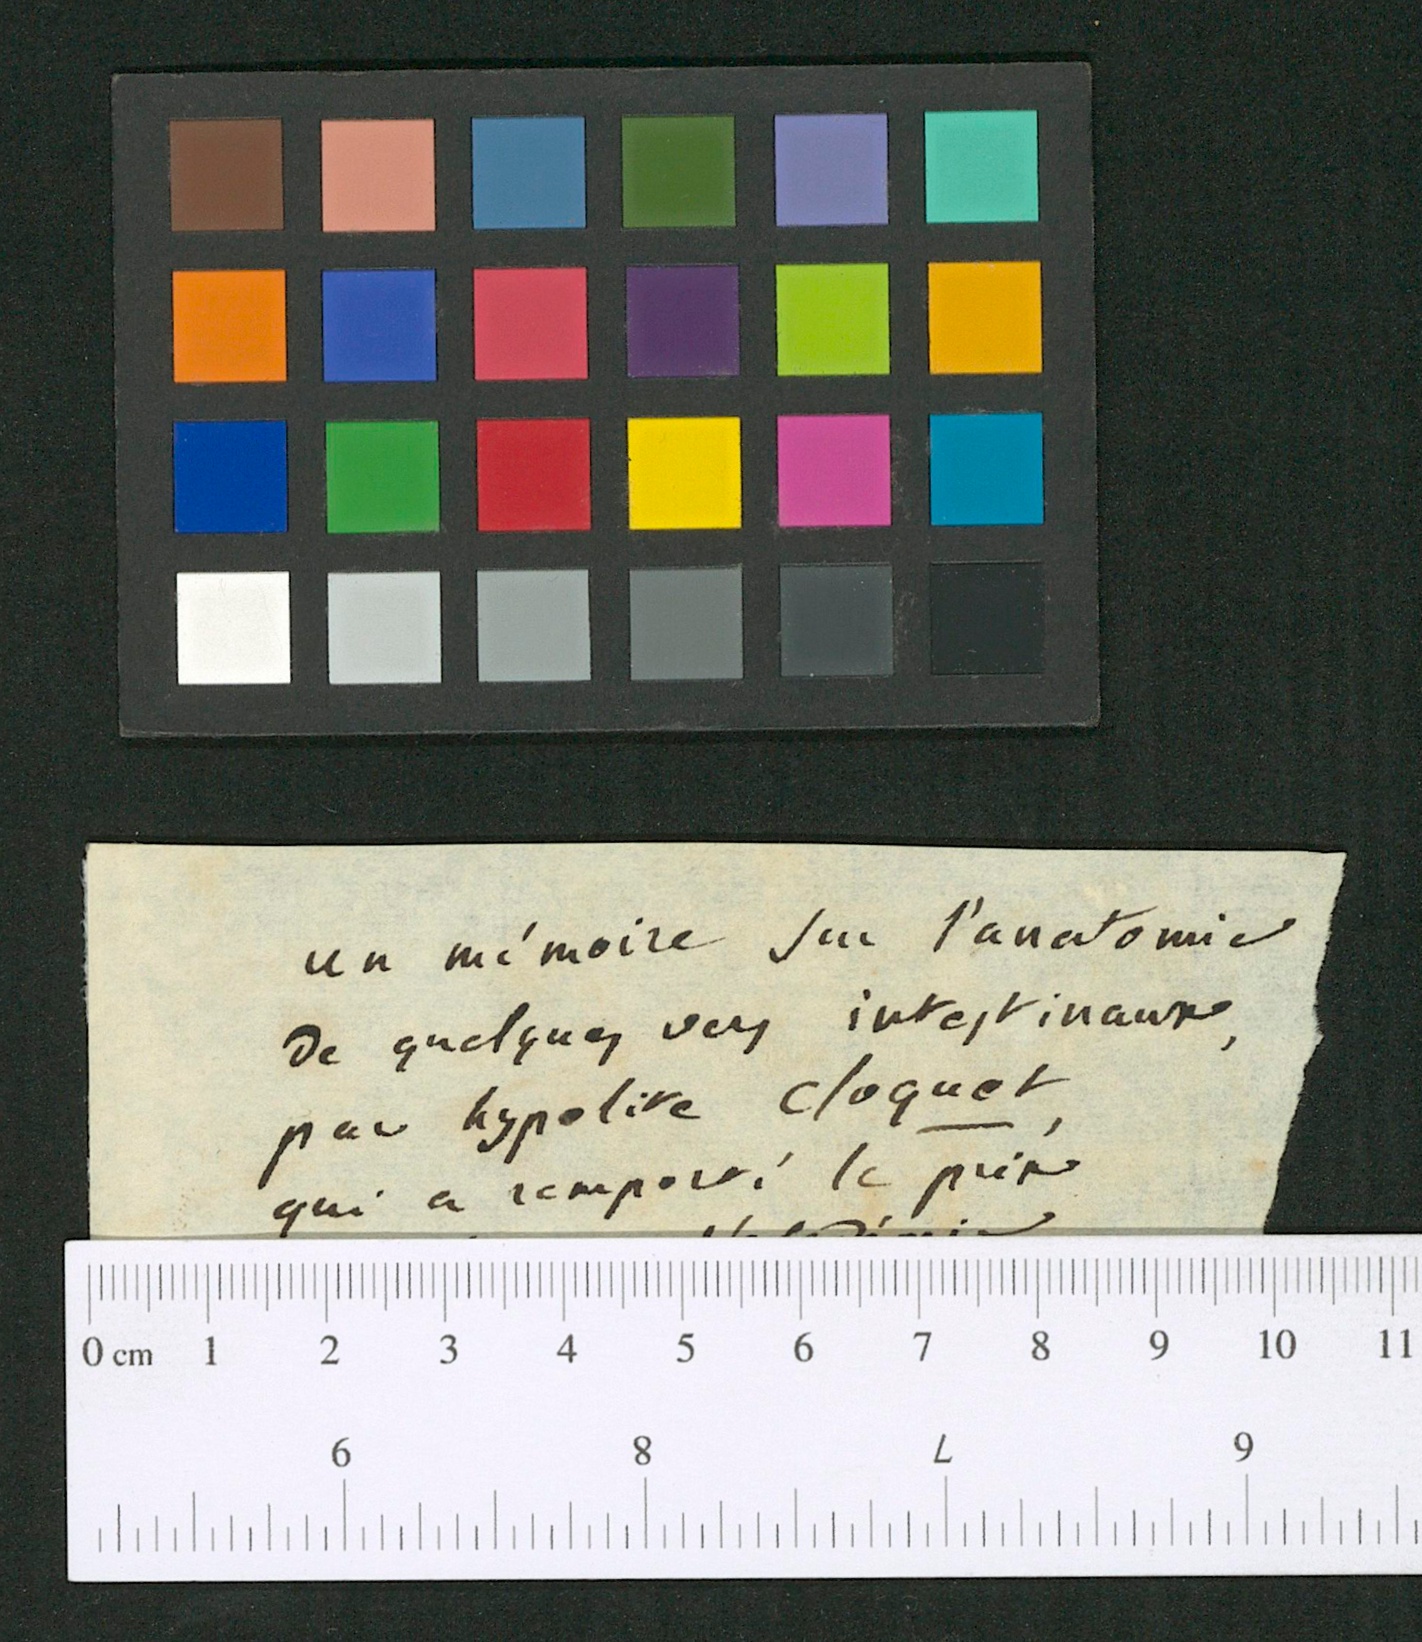 un mémoire sur l'anatomie
de quelques vers intestinaux,
par hypolite Cloquet,
qui a remporté le prix
0 cm 1 2 3 4 5 6 7 8 9 10 11
9 8 7 6